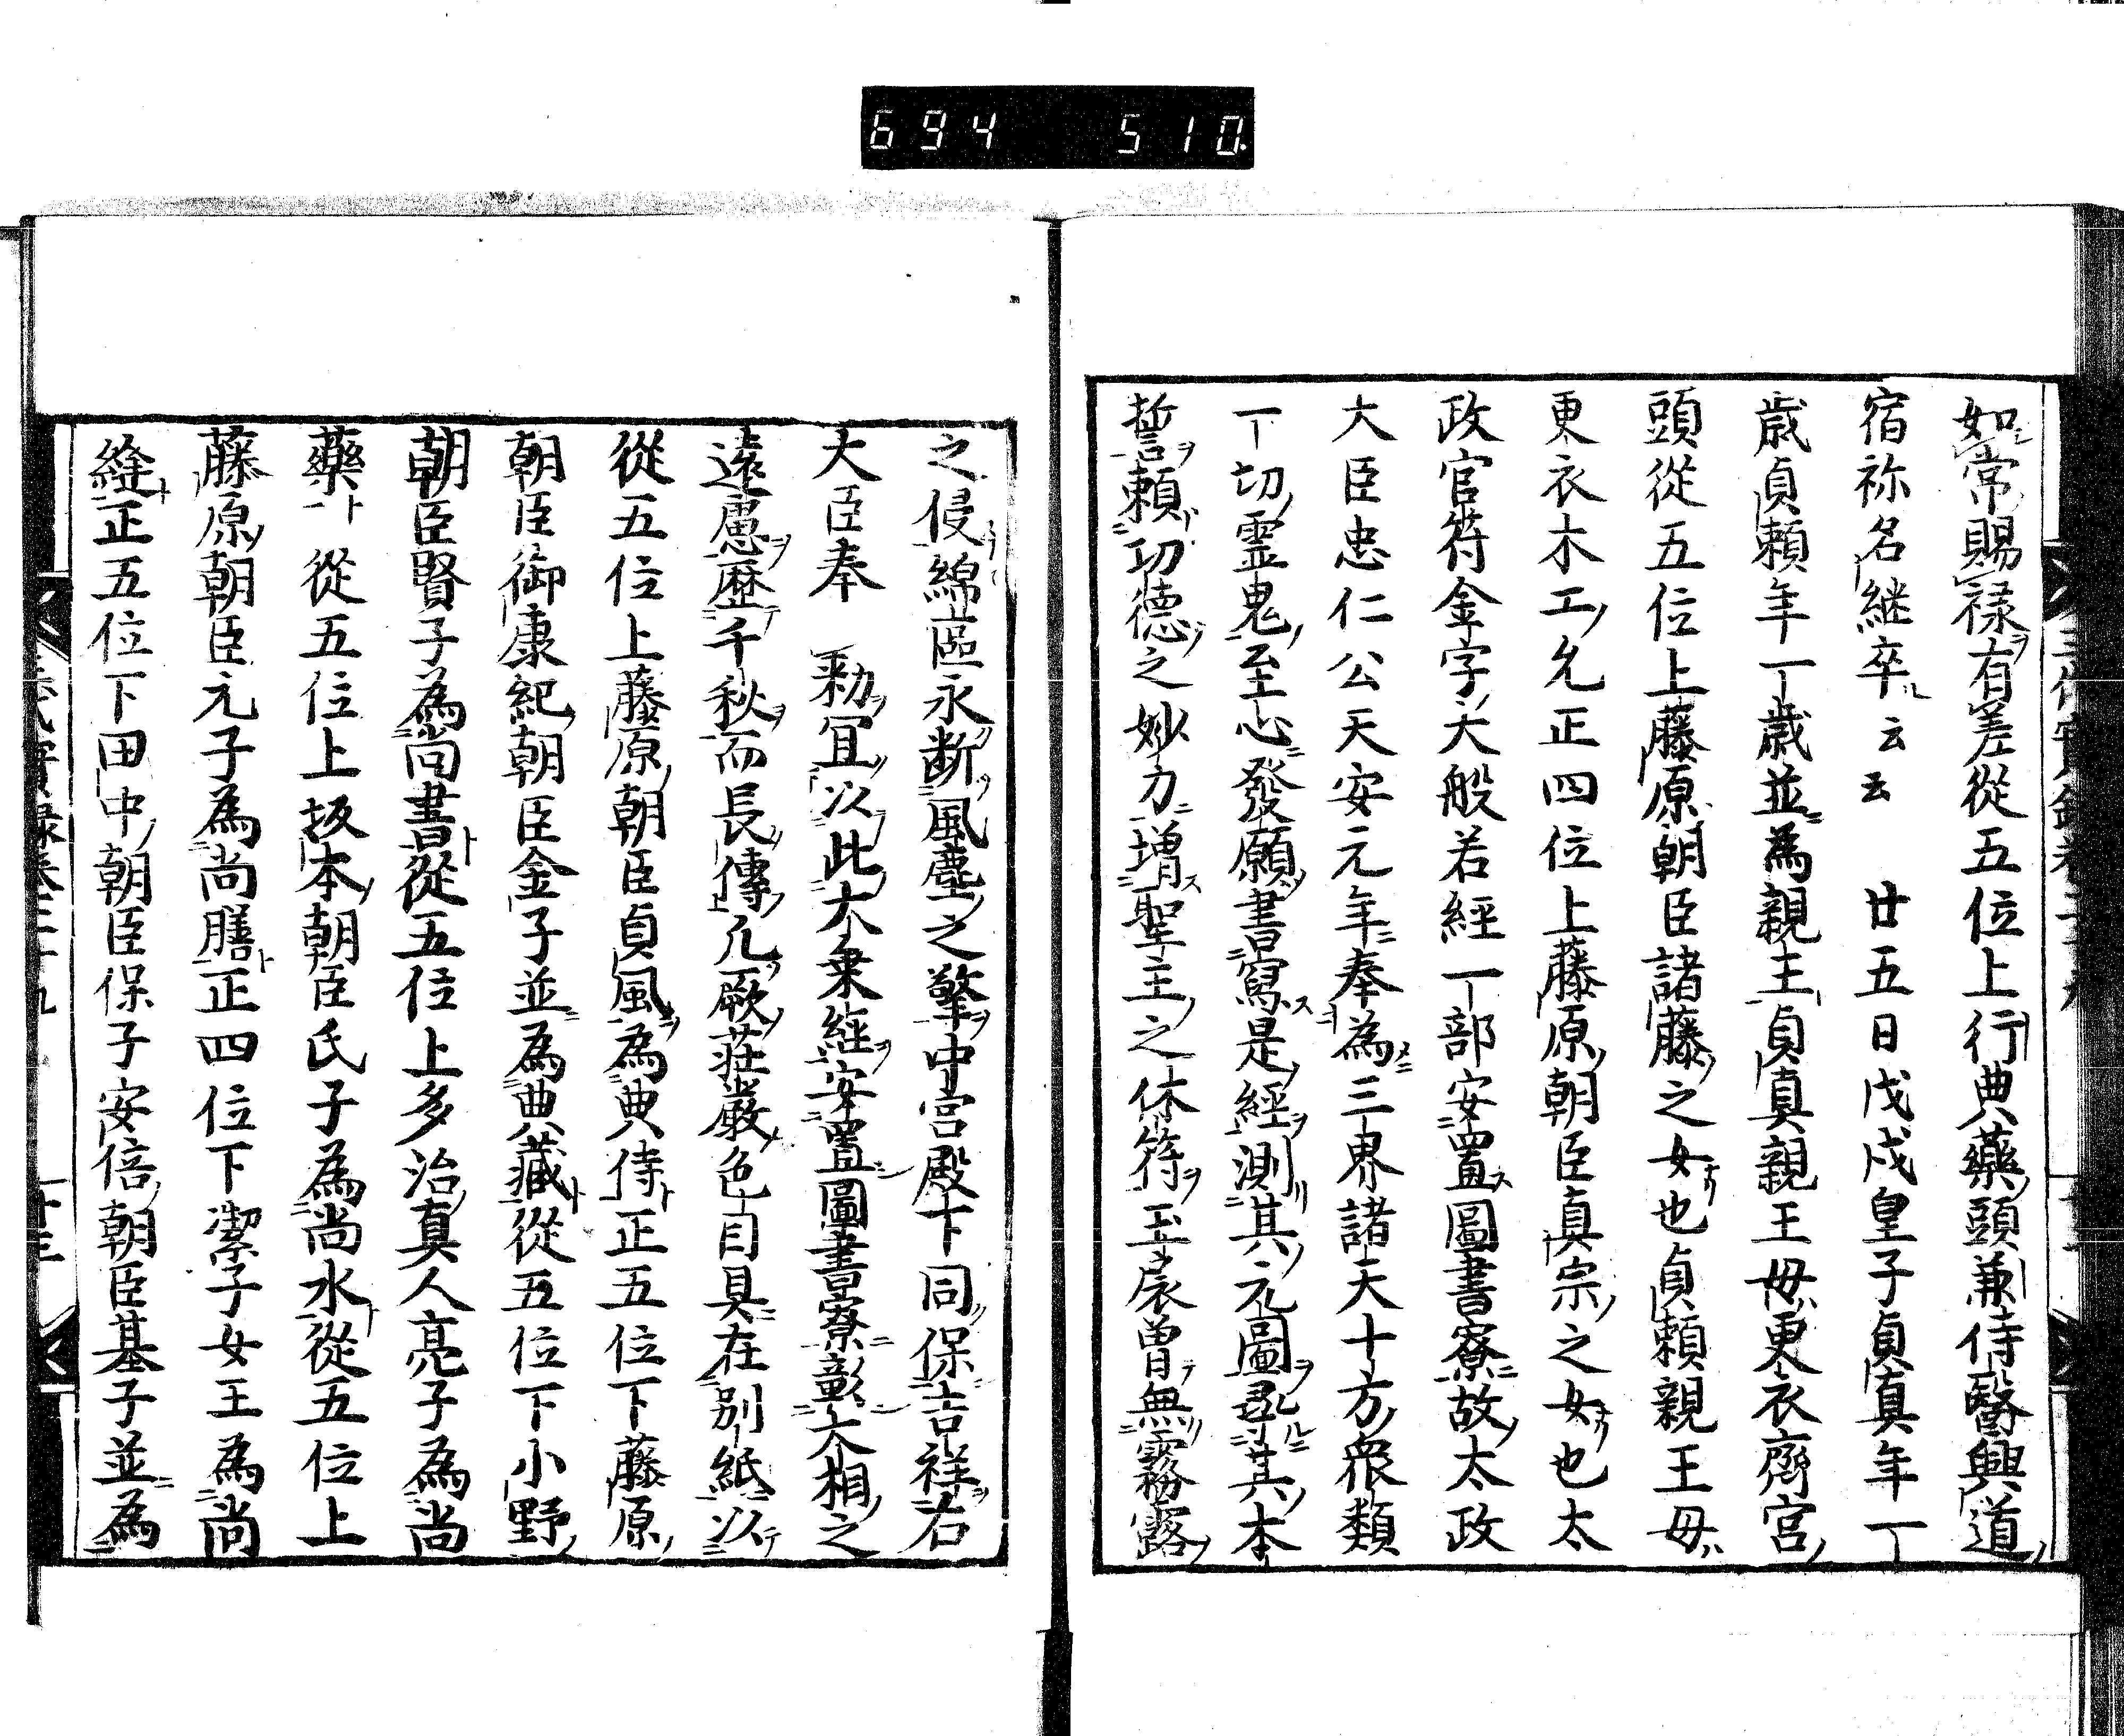 694 510
如常賜禄有差從五位上行典藥頭兼侍醫興道
宿祢名継卒云云 廿五日戊戌皇子貞真年一
歳貞頼年一歳並為親王貞真親王母更衣齊宮
頭從五位上藤原朝臣諸藤之女也貞頼親王母
更衣木工允正四位上藤原朝臣真宗之女也太
政官符金字大般若經一部安置圖書寮故太政
大臣忠仁公天安元年奉為三界諸天十方衆類
一切霊鬼至心發願書寫是經測其元圖尋其本
誓頼功徳之妙力増聖主之休符玉扆曽無霧露
之侵綿區永断風塵之擎中宮殿下同保吉祥右
大臣奉 勅冝以此大乗經安置圖書寮彰大相之
遠慮歴千秋而長傳凢厥莊嚴色目具在別紙以
從五位上藤原朝臣貞風為典侍正五位下藤原
朝臣御康紀朝臣金子並為典蔵從五位下小野
朝臣賢子為尚書從五位上多治真人亮子為尚
藥從五位上坂本朝臣氏子為尚水從五位上
藤原朝臣元子為尚膳正四位下潔子女王為尚
縫正五位下田中朝臣保子安倍朝臣基子並為